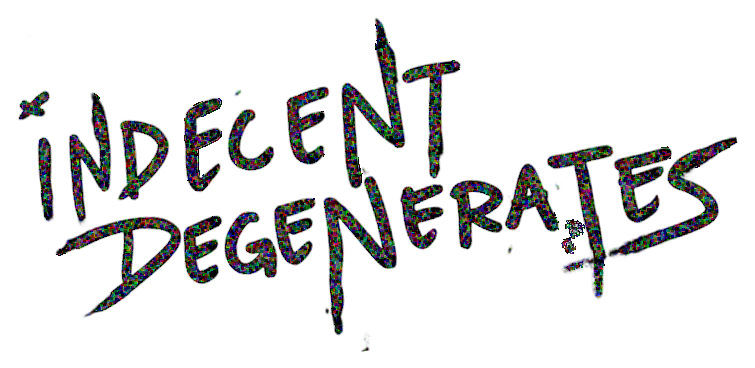 INDECENT
DEGENERATES